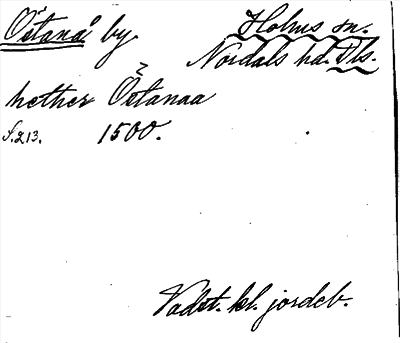 Östanå by.
Holms sn.
Nordals hd. Dls.
hether Östanaa
S. 213. 1500.
Vadst. kl. jordeb.